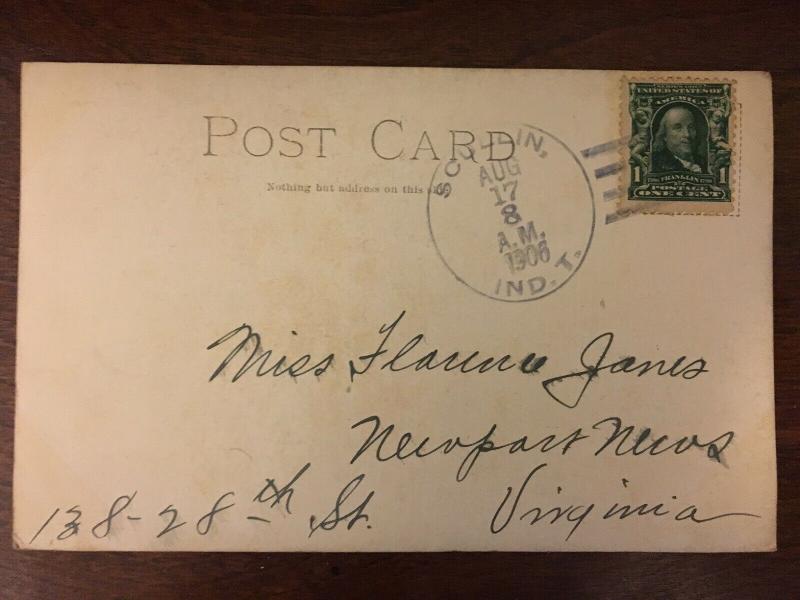 POST CARD
Nothing but address on this side
SCULLIN,
AUG
17
8
A.M.
1906
IND. T.
UNITED STATES OF
AMERICA
1 FRANKLIN 1
POSTAGE
ONE CENT
Miss Florence Janes
Newport News
138-28th St. Virginia